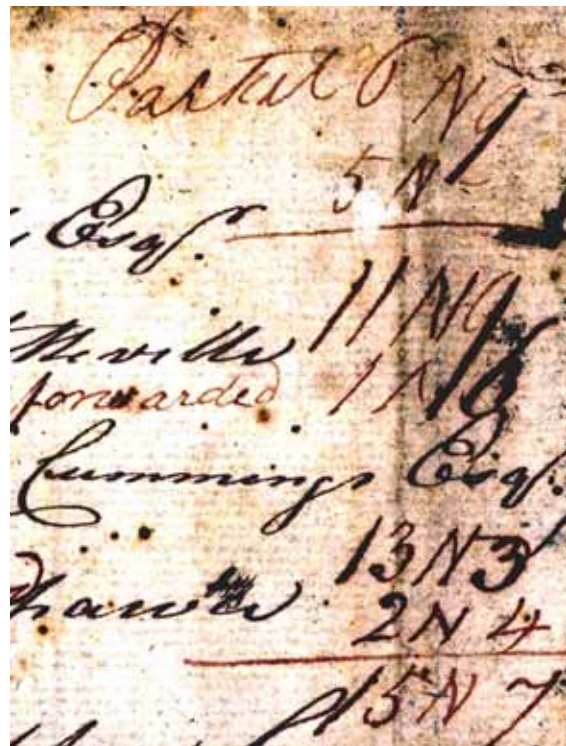 Packet 6 N 9
5 N -
Esqr.
11 N 9
forwarded
Cummings Esqr.
13 N 3
2 N 4
15 N 7